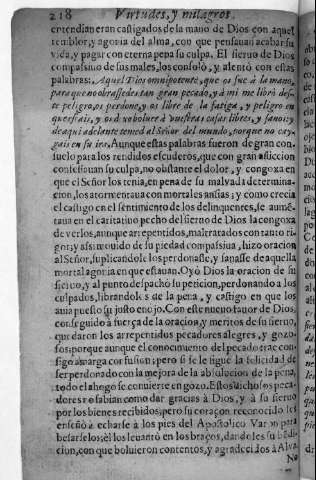 218 Virtudes, y milagros.
entendian eran castigados de la mano de Dios con aquel
temblor, y agonia del alma, con que pensauan acabar su
vida, y pagar con eterna pena su culpa. El sieruo de Dios
compasiuo de sus males, los consoló, y alentó con estas
palabras: Aquel Dios omnipotente, que os fue à la mano,
para que no obrassedes tan gran pecado, y à mi me libró des-
te peligro, os perdone, y os libre de la fatiga, y peligro en
que estais, y os dè voluer à vuestras casas libres, y sanos; y
de aqui adelante temed al Señor del mundo, porque no cay-
gais en su ira. Aunque estas palabras fueron de gran con-
suelo para los rendidos escuderos, que con gran afliccion
confessauan su culpa, no obstante el dolor, y congoxa en
que el Señor los tenia, en pena de su maluada determina-
cion, los atormentaua con mortales ansias; y como crecia
el castigo en el sentimiento de los delinquentes, se aumẽ-
taua en el caritatiuo pecho del sieruo de Dios la congoxa
de verlos, aunque arrepentidos, maltratados con tanto ri-
gor; y assi mouido de su piedad compassiua, hizo oracion
al Señor, suplicandole los perdonasse, y sanasse de aquella
mortal agonia en que estauan. Oyó Dios la oracion de su
sieruo, y al punto despachó su peticion, perdonando a los
culpados, librandolos de la pena, y castigo en que los
auia puesto su justo enojo. Con este nueuo fauor de Dios,
conseguido à fuerça de la oracion, y meritos de su sieruo,
quedaron los arrepentidos pecadores alegres, y gozo-
sos; porque aunque el conocimiento del pecado trae con-
sigo amarga confusion; pero si se le sigue la felicidad de
ser perdonado con la mejora de la absolucion de la pena,
todo el ahogo se conuierte en gozo. Estos dichosos peca-
dores no sabian como dar gracias à Dios, y à su sieruo
por los bienes recibidos; pero su coraçon reconocido les
enseñó a echarse à los pies del Apostolico Varon para
besarselos; èl los leuantó en los braços, dandoles su bẽdi-
cion, con que boluieron contentos, y agradecidos à Alua.